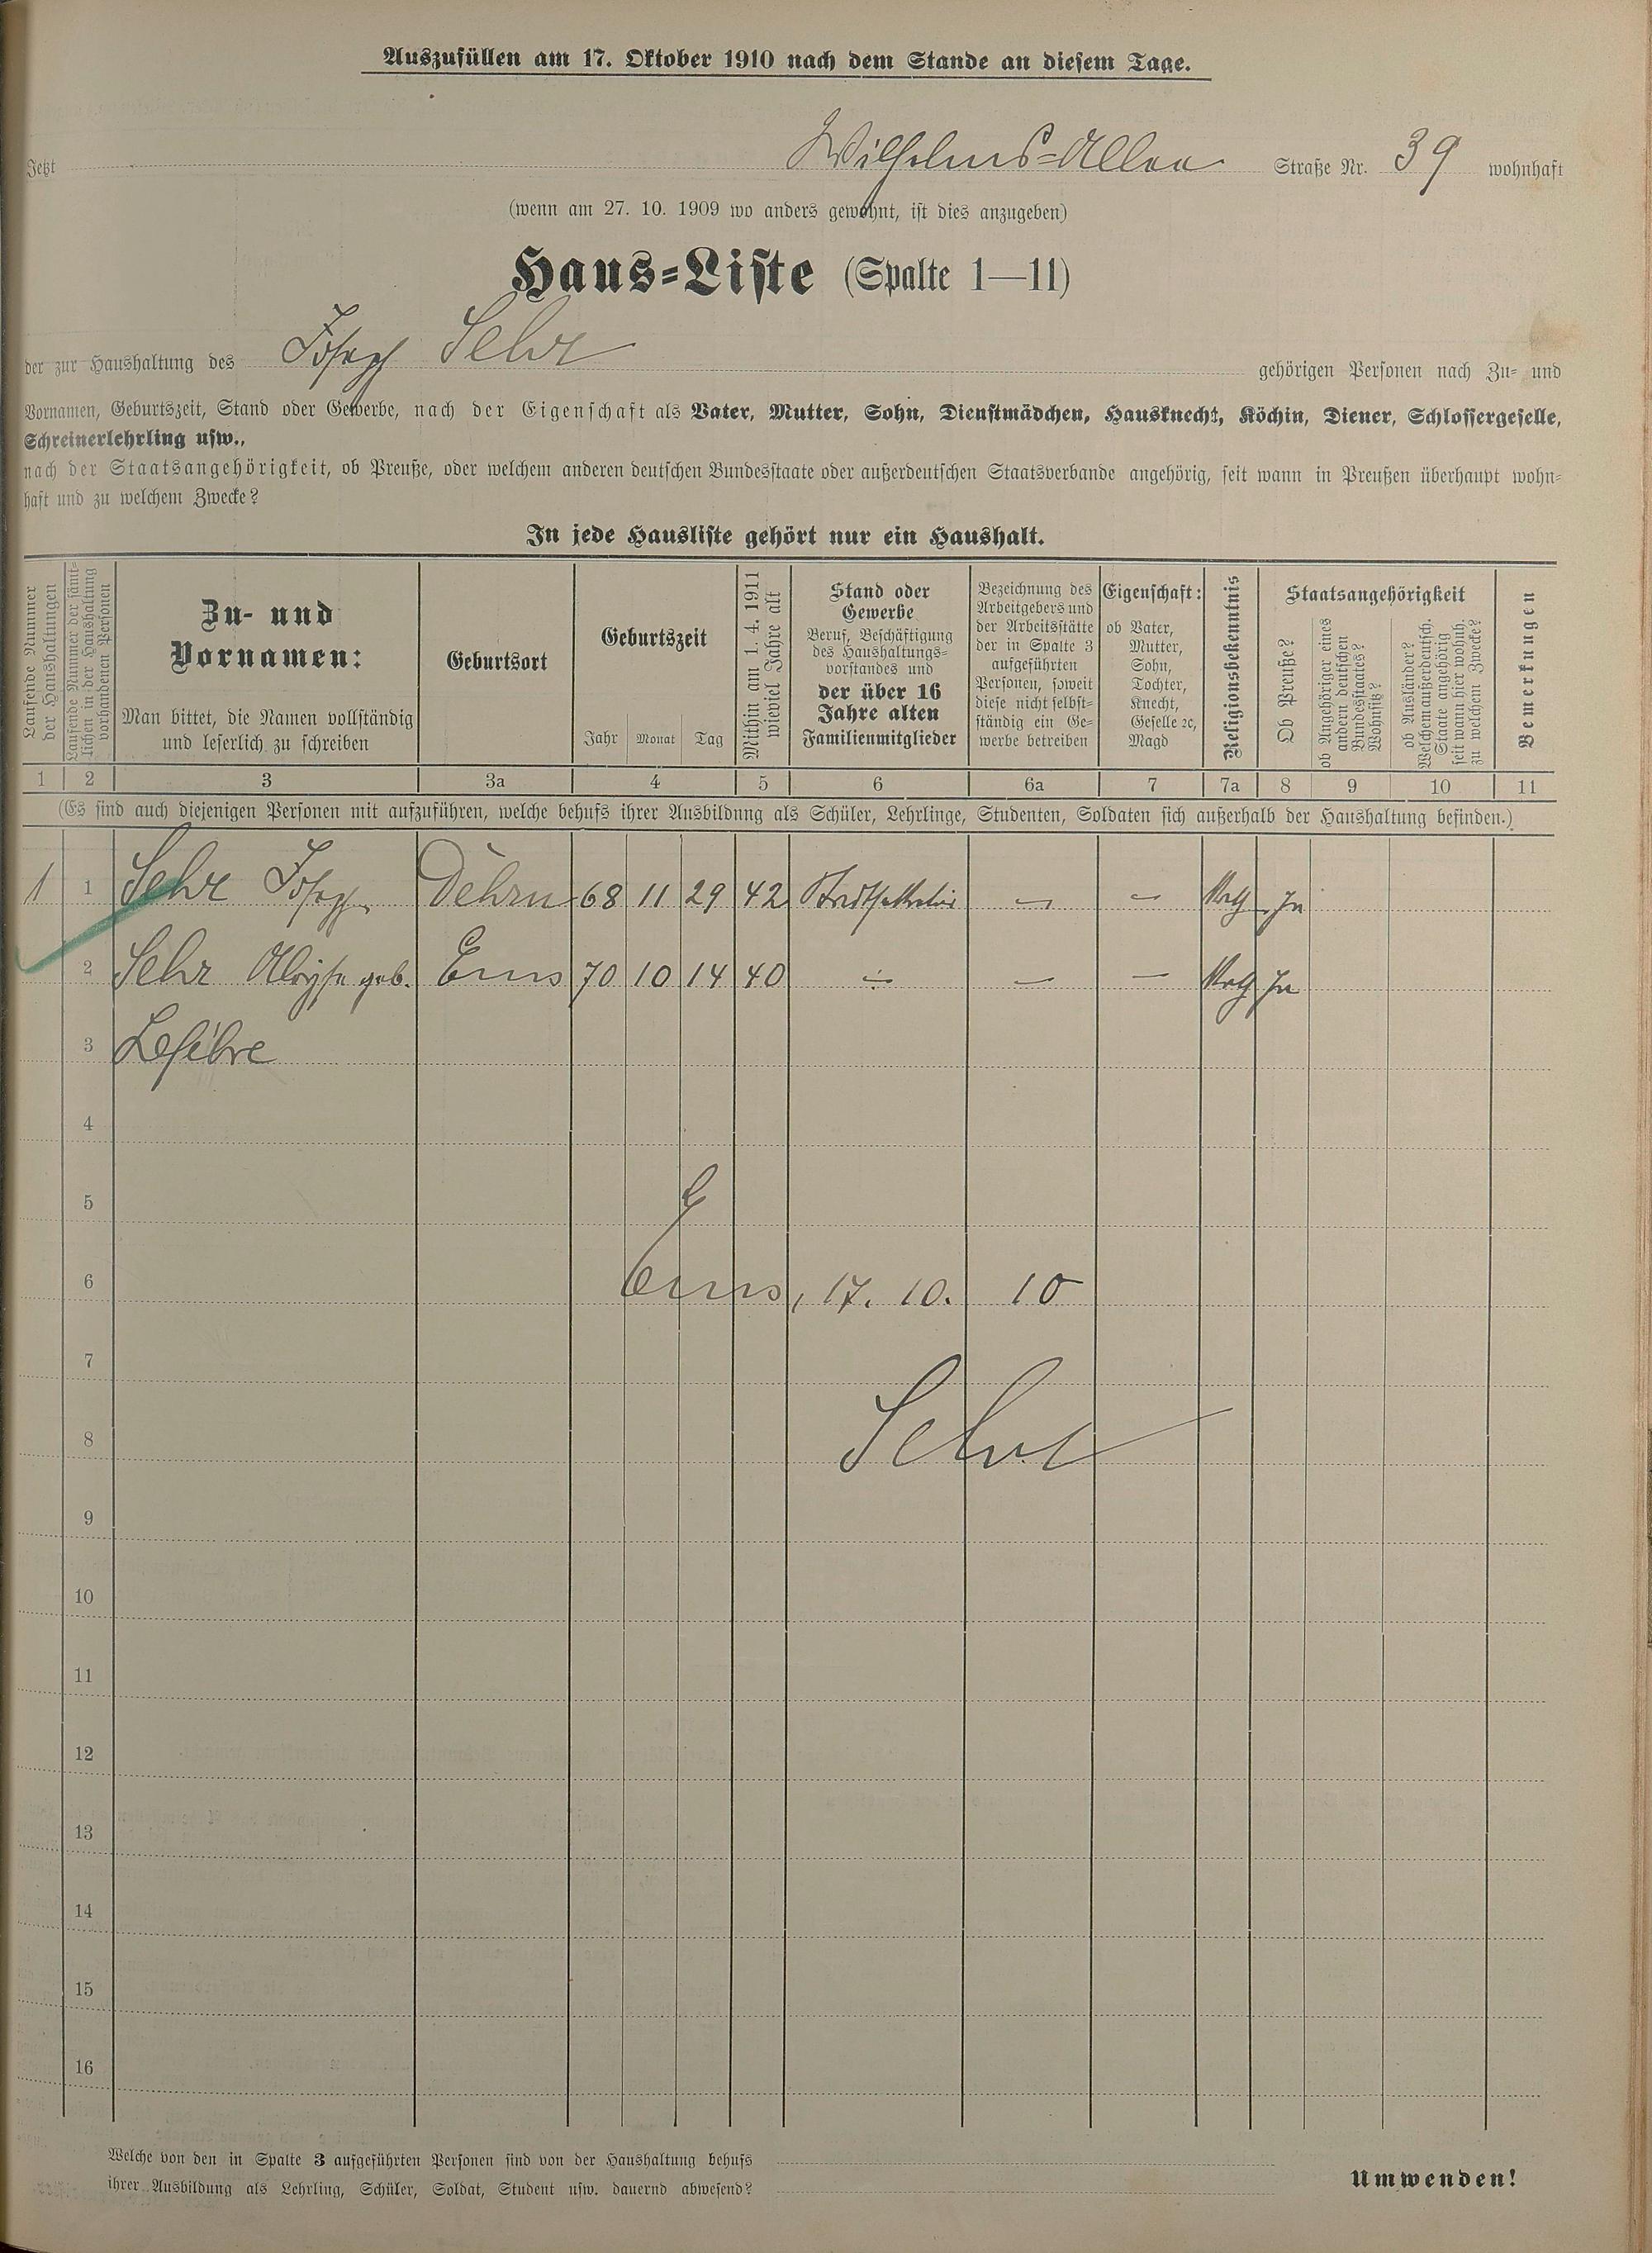 Auszufüllen am 17. Oktober 1910 nach dem Stande an diesem Tage.
Jetzt Wilhelms-Allee Straße Nr. 39 wohnhaft
(wenn am 27. 10. 1909 wo anders gewohnt, ist dies anzugeben)
Haus-Liste (Spalte 1—11)
der zur Haushaltung des Josef Sehr gehörigen Personen nach Zu- und
Vornamen, Geburtszeit, Stand oder Gewerbe, nach der Eigenschaft als Vater, Mutter, Sohn, Dienstmädchen, Hausknecht, Köchin, Diener, Schlossergeselle,
Schreinerlehrling usw.,
nach der Staatsangehörigkeit, ob Preuße, oder welchem anderen deutschen Bundesstaate oder außerdeutschen Staatsverbande angehörig, seit wann in Preußen überhaupt wohn-
haft und zu welchem Zwecke?
In jede Hausliste gehört nur ein Haushalt.
Laufende Nummer
der Haushaltungen
Laufende Nummer der sämt-
lichen in der Haushaltung
vorhandenen Personen
Zu- und
Vornamen:
Man bittet, die Namen vollständig
und leserlich zu schreiben
Geburtsort
Geburtszeit
Jahr Monat Tag
Mithin am 1. 4. 1911
wieviel Jahre alt
Stand oder
Gewerbe
Beruf, Beschäftigung
des Haushaltungs-
vorstandes und
der über 16
Jahre alten
Familienmitglieder
Bezeichnung des
Arbeitgebers und
der Arbeitsstätte
der in Spalte 3
aufgeführten
Personen, soweit
diese nicht selbst-
ständig ein Ge-
werbe betreiben
Eigenschaft:
ob Vater,
Mutter,
Sohn,
Tochter,
Knecht,
Geselle ꝛc,
Magd
Religionsbekenntnis
Staatsangehörigkeit
Ob Preuße?
ob Angehöriger eines
andern deutschen
Bundesstaates?
Wohnsitz?
ob Ausländer?
Welchem außerdeutsch.
Staate angehörig
seit wann hier wohnh.
zu welchem Zwecke?
Bemerkungen
1 2 3 3a 4 5 6 6a 7 7a 8 9 10 11
(Es sind auch diejenigen Personen mit aufzuführen, welche behufs ihrer Ausbildung als Schüler, Lehrlinge, Studenten, Soldaten sich außerhalb der Haushaltung befinden.)
1 1 Sehr Josef Dehrn 68 11 29 42 — — Kath Ja
2 Sehr Aloyse geb. Ems 70 10 14 40 ÷ — — Kath Ja
3 Lefèbre
4
5
6 Ems, 17. 10. 10
7
8 Sehr
9
10
11
12
13
14
15
16
Welche von den in Spalte 3 aufgeführten Personen sind von der Haushaltung behufs
ihrer Ausbildung als Lehrling, Schüler, Soldat, Student usw. dauernd abwesend?
Umwenden!